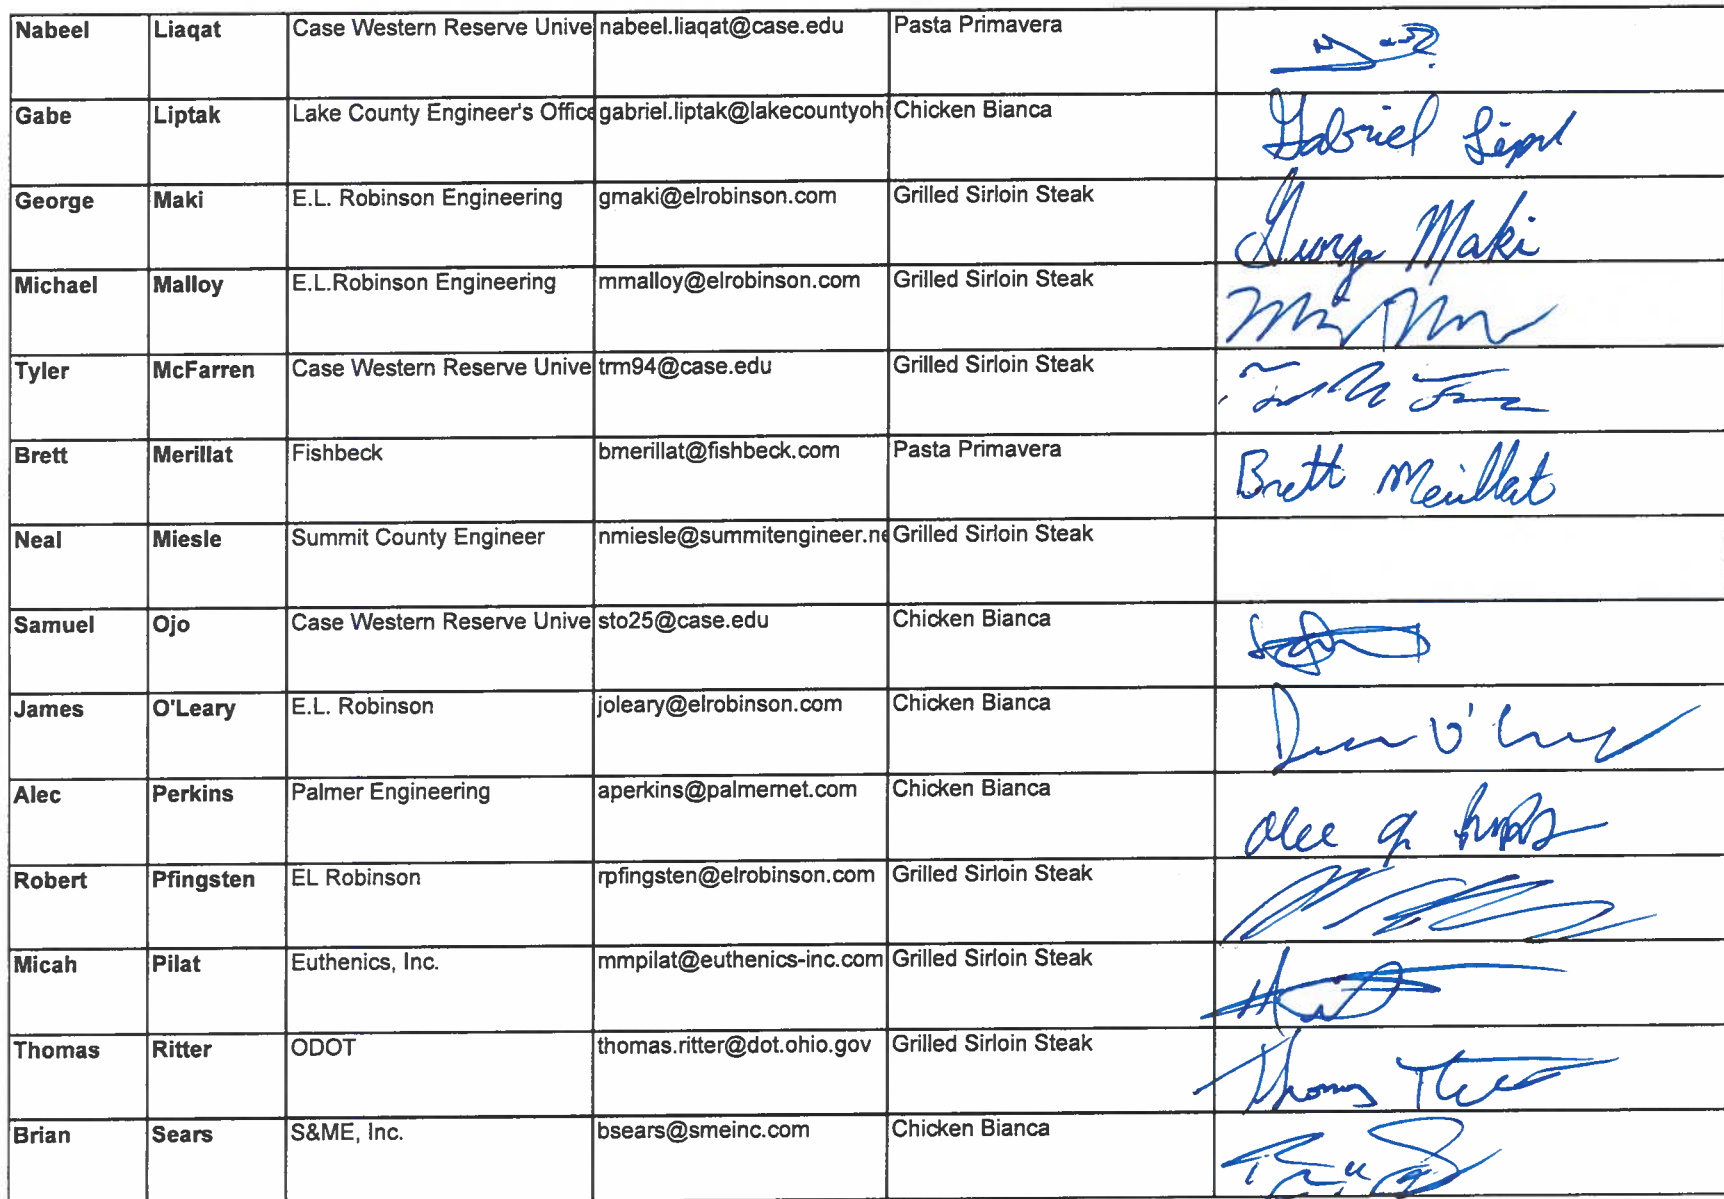 Nabeel Liaqat Case Western Reserve Unive nabeel.liaqat@case.edu Pasta Primavera
Gabe Liptak Lake County Engineer's Office gabriel.liptak@lakecountyoh Chicken Bianca Gabriel
George Maki E.L. Robinson Engineering gmaki@elrobinson.com Grilled Sirloin Steak George Maki
Michael Malloy E.L.Robinson Engineering mmalloy@elrobinson.com Grilled Sirloin Steak
Tyler McFarren Case Western Reserve Unive trm94@case.edu Grilled Sirloin Steak
Brett Merillat Fishbeck bmerillat@fishbeck.com Pasta Primavera Brett Merillat
Neal Miesle Summit County Engineer nmiesle@summitengineer.ne Grilled Sirloin Steak
Samuel Ojo Case Western Reserve Unive sto25@case.edu Chicken Bianca
James O'Leary E.L. Robinson joleary@elrobinson.com Chicken Bianca
Alec Perkins Palmer Engineering aperkins@palmernet.com Chicken Bianca Alec
Robert Pfingsten EL Robinson rpfingsten@elrobinson.com Grilled Sirloin Steak
Micah Pilat Euthenics, Inc. mmpilat@euthenics-inc.com Grilled Sirloin Steak
Thomas Ritter ODOT thomas.ritter@dot.ohio.gov Grilled Sirloin Steak Thomas
Brian Sears S&ME, Inc. bsears@smeinc.com Chicken Bianca